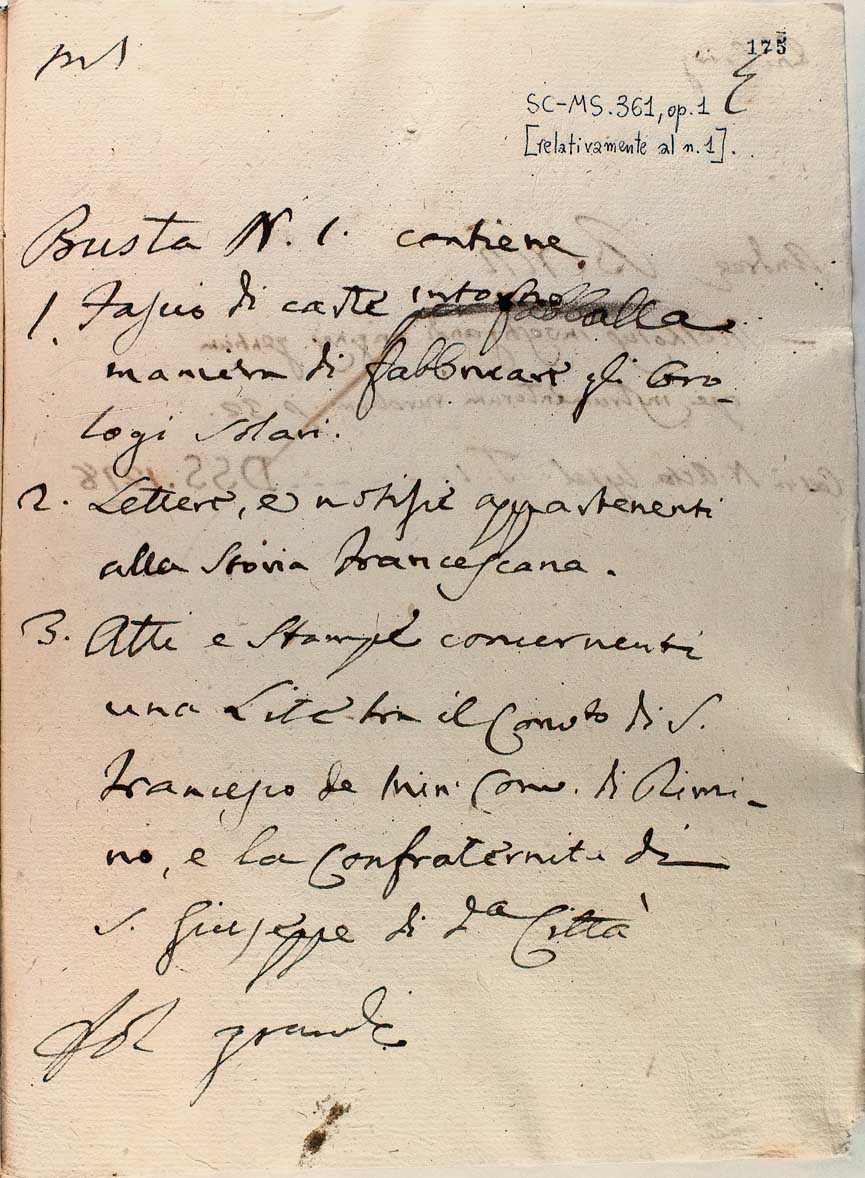 175
SC-MS.361, op. 1
[relativamente al n. 1].
Busta N. 1. contiene
1. Fascio di carte intorno alla
maniera di fabbricare gli Oro-
logi Solari.
2. Lettere, e notizie appartenenti
alla Storia Francescana.
3. Atti e Stampe concernenti
una Lite tra il Convto di S.
Francesco de Min. Conv. di Rimi-
no, e la Confraternita di
S. Giuseppe di da Città
fol grande